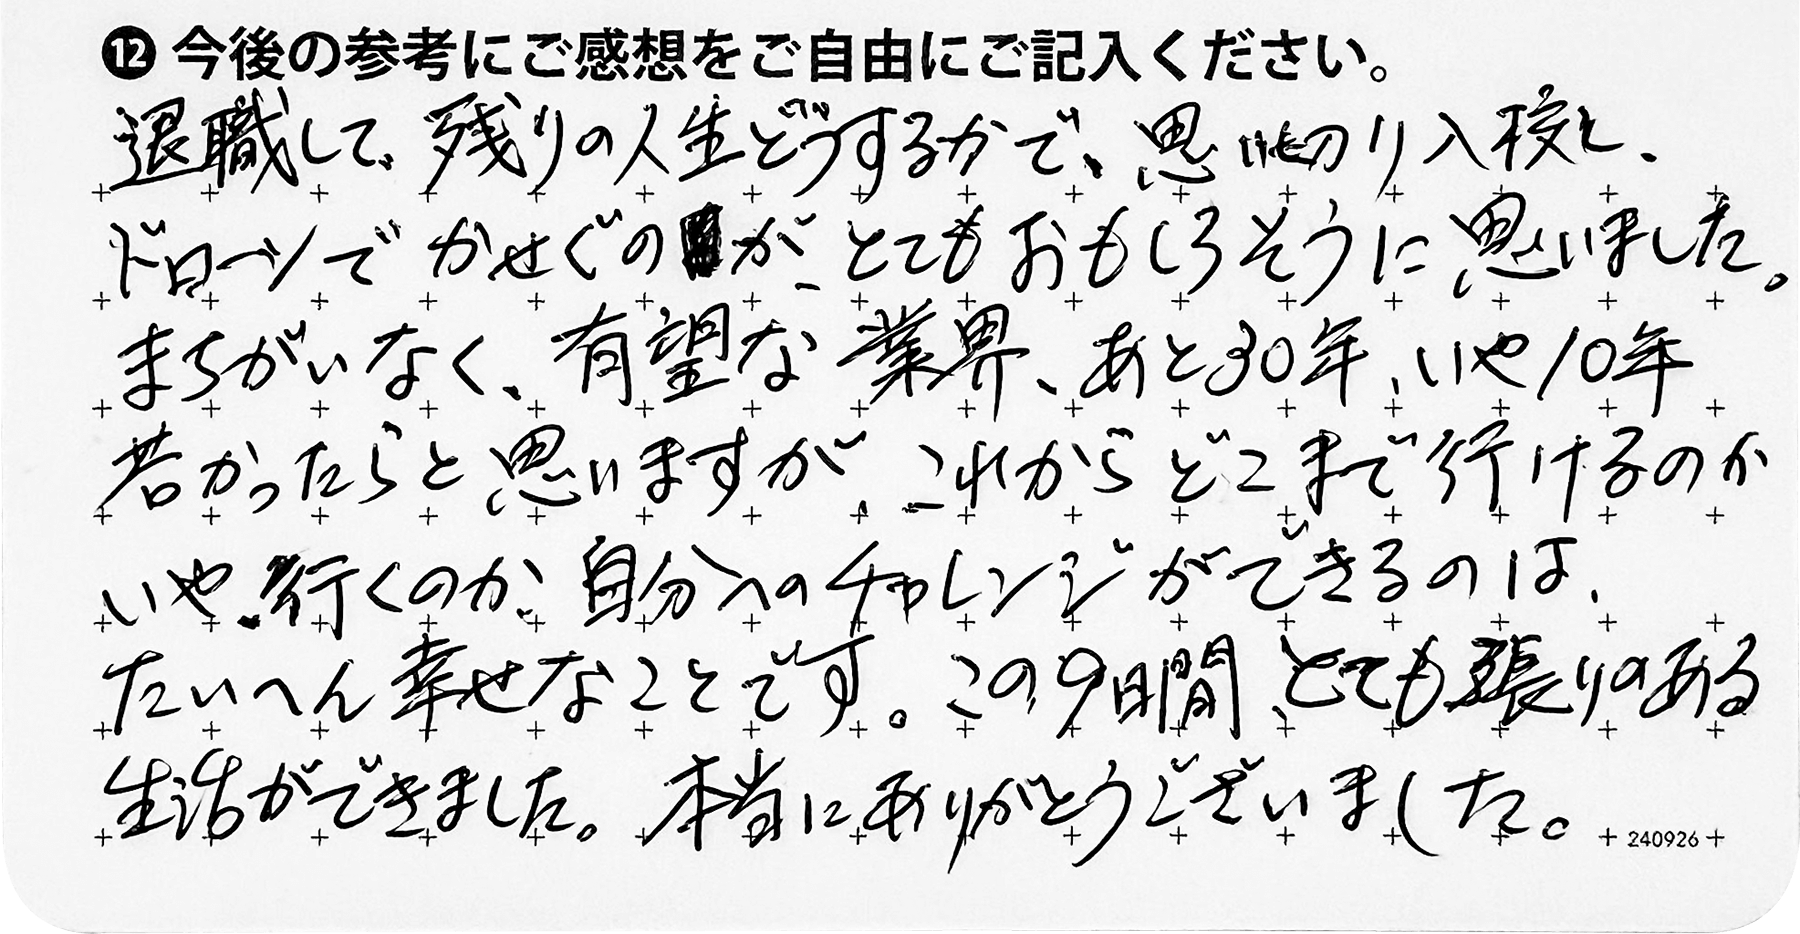 ⓬ 今後の参考にご感想をご自由にご記入ください。
退職して、残りの人生どうするかで、思い切り入校し、
ドローンでかせぐのが、とてもおもしろそうに思いました。
まちがいなく、有望な業界、あと30年、いや10年
若かったらと思いますが、これからどこまで行けるのか
いや、行くのか、自分へのチャレンジができるのは、
たいへん幸せなことです。この9日間、とても張りのある
生活ができました。本当にありがとうございました。
240926